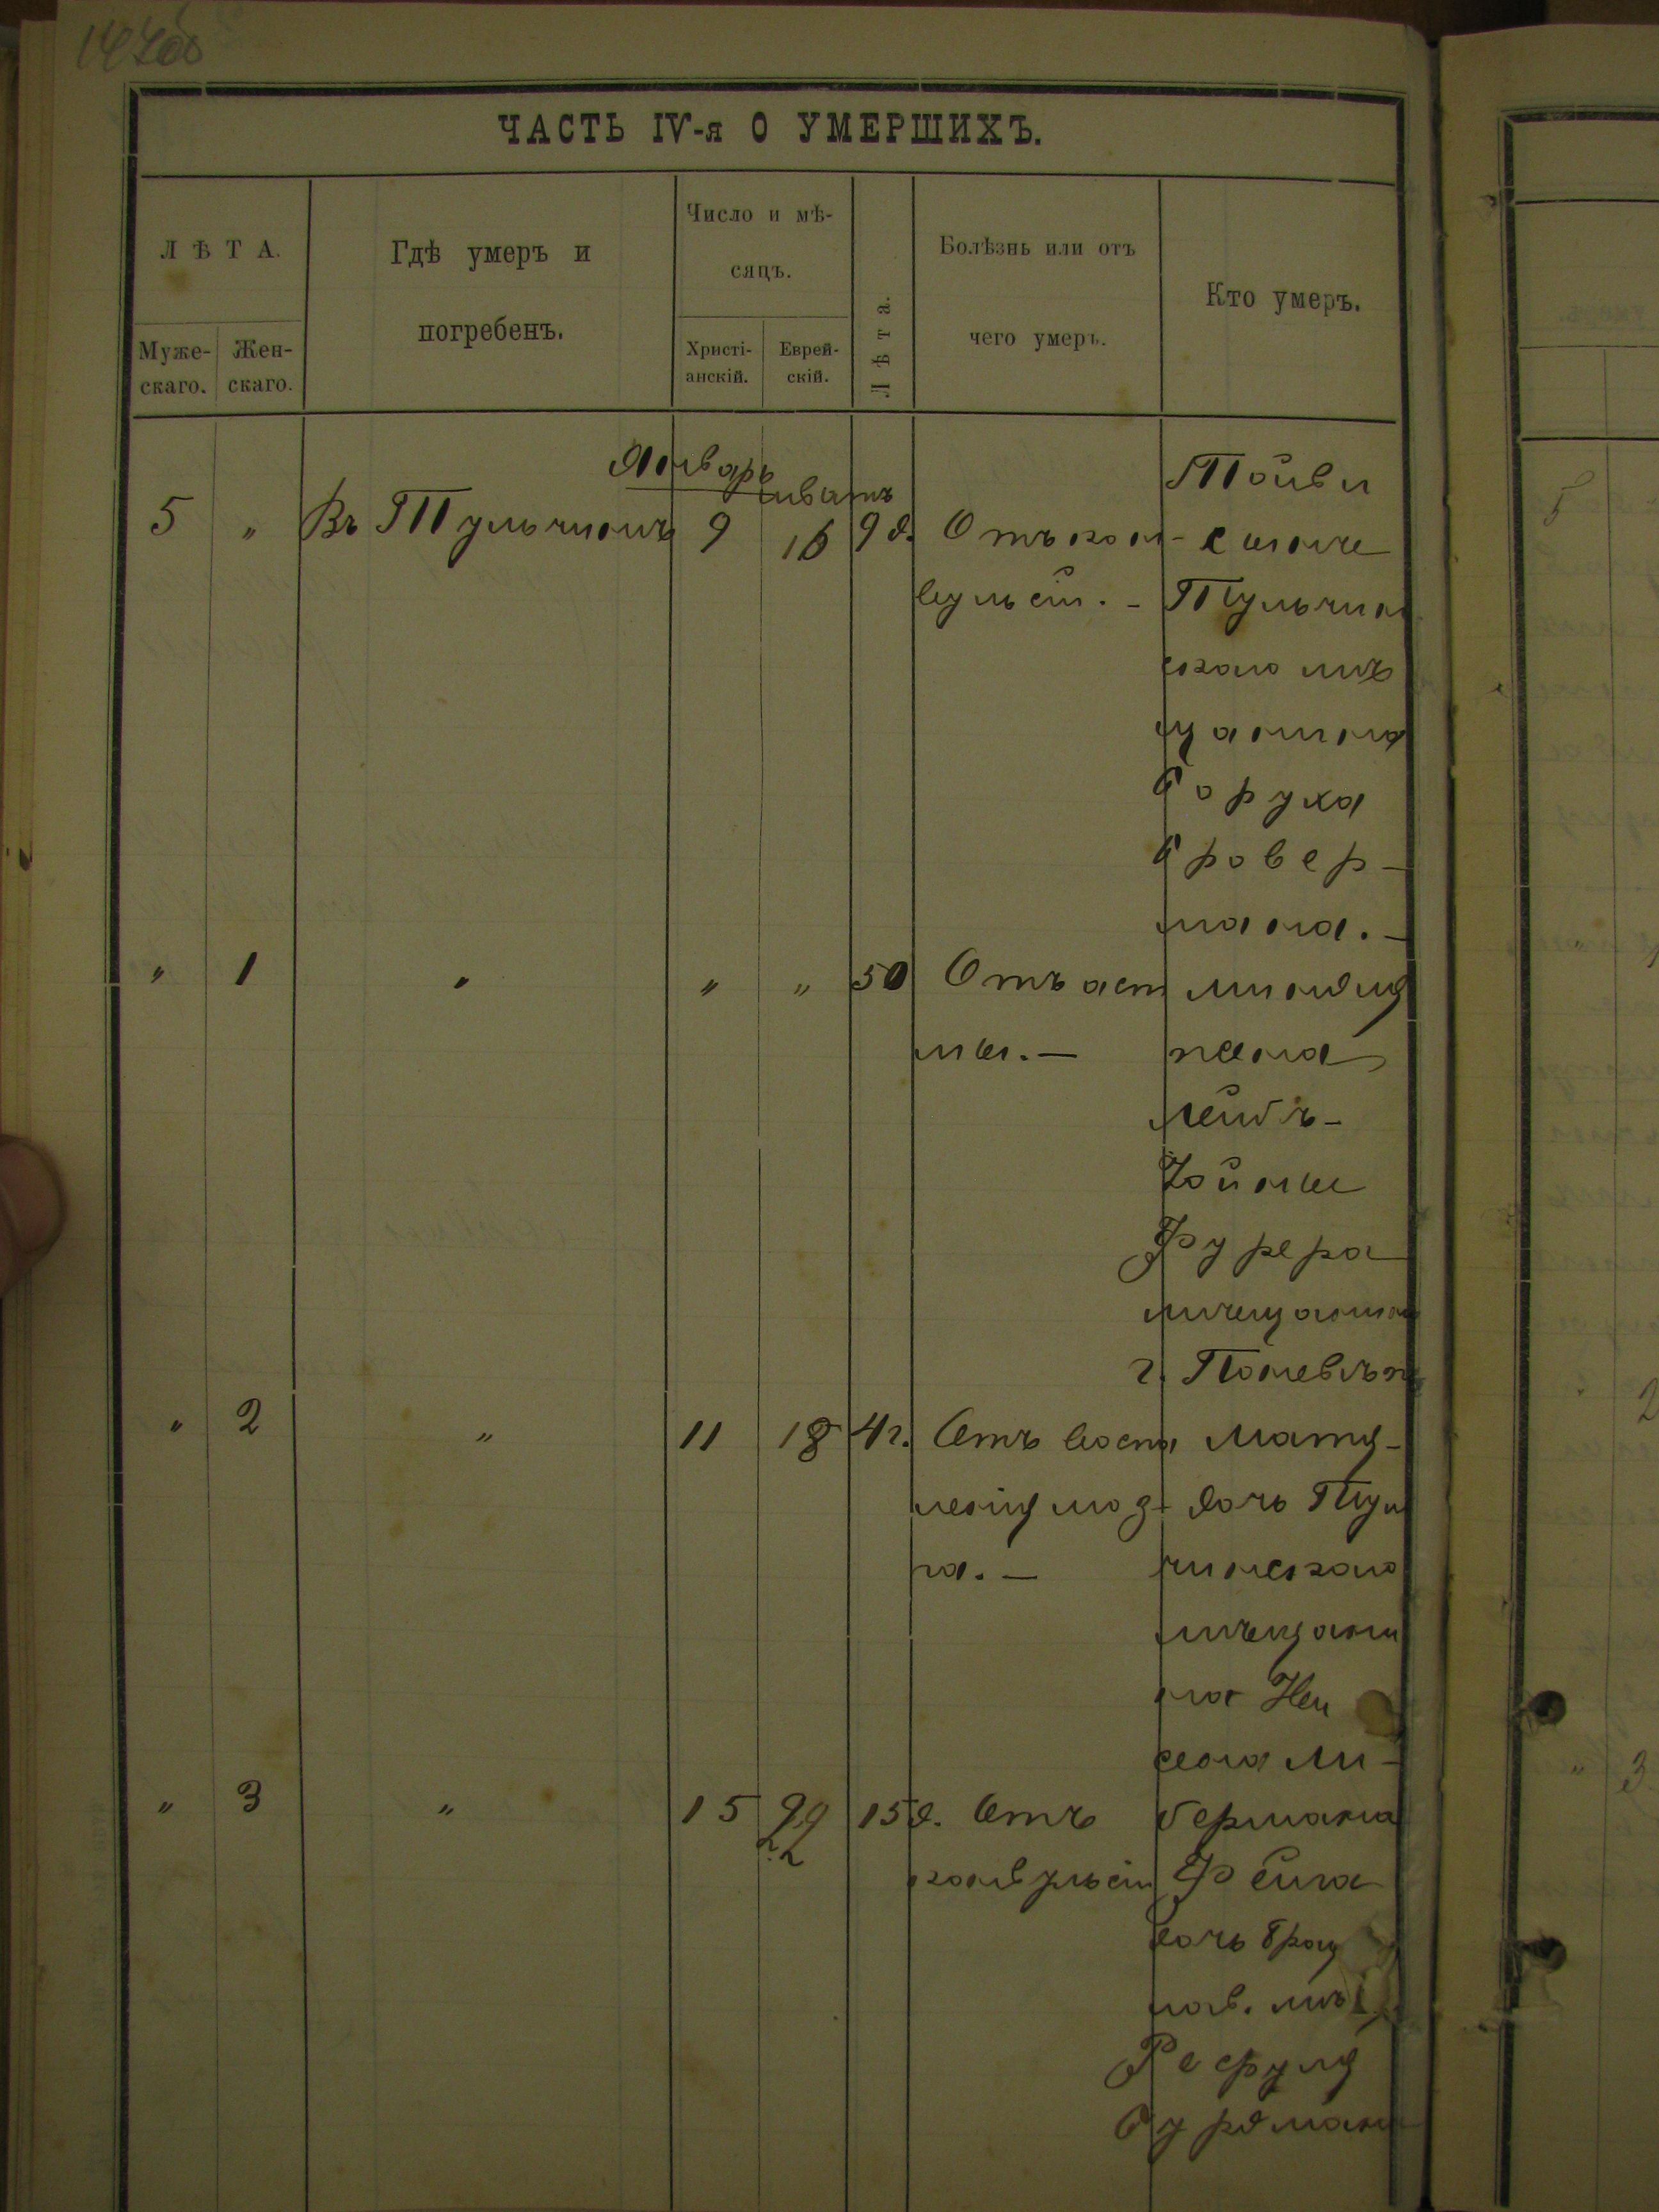 ЧАСТЬ IV-я О УМЕРШИХЪ.
ЛѢТА.
Муже-
скаго.
Жен-
скаго.
Гдѣ умеръ и
погребенъ.
Число и мѣ-
сяцъ.
Христі-
анскій.
Еврей-
скій.
Лѣта.
Болѣзнь или отъ
чего умеръ.
Кто умеръ.
Январь
Шватъ
5 " Въ Тульчинѣ 9 16 9 д. Отъ кон-
вульсіи. -
Тойви
сынъ
Тульчин
скаго мѣ
щанина
Боруха
Бровер-
мана. -
" 1 " " " 50 Отъ аст
мы. -
жена
Лейбъ-
Хойны
Фурера
мѣщанина
г.
" 2 " 11 18 4 г. Отъ воспа
ленія моз-
га. -
Матя-
дочь Туль
чинскаго
мѣщани
на
Ли-
бермана
" 3 " 15 22 15 д. Отъ
конвульсіи
Фейга
дочь Брац
лав. мѣщ.
Рефуля
Бурдмана